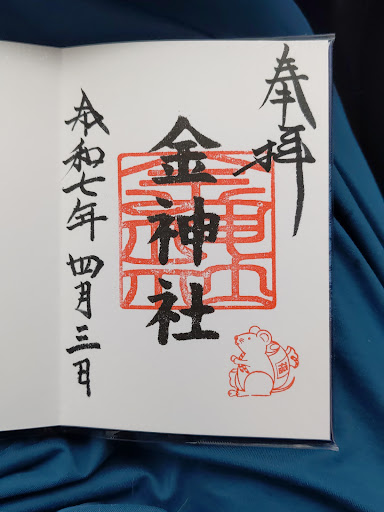 奉拝
金神社
令和七年四月三日